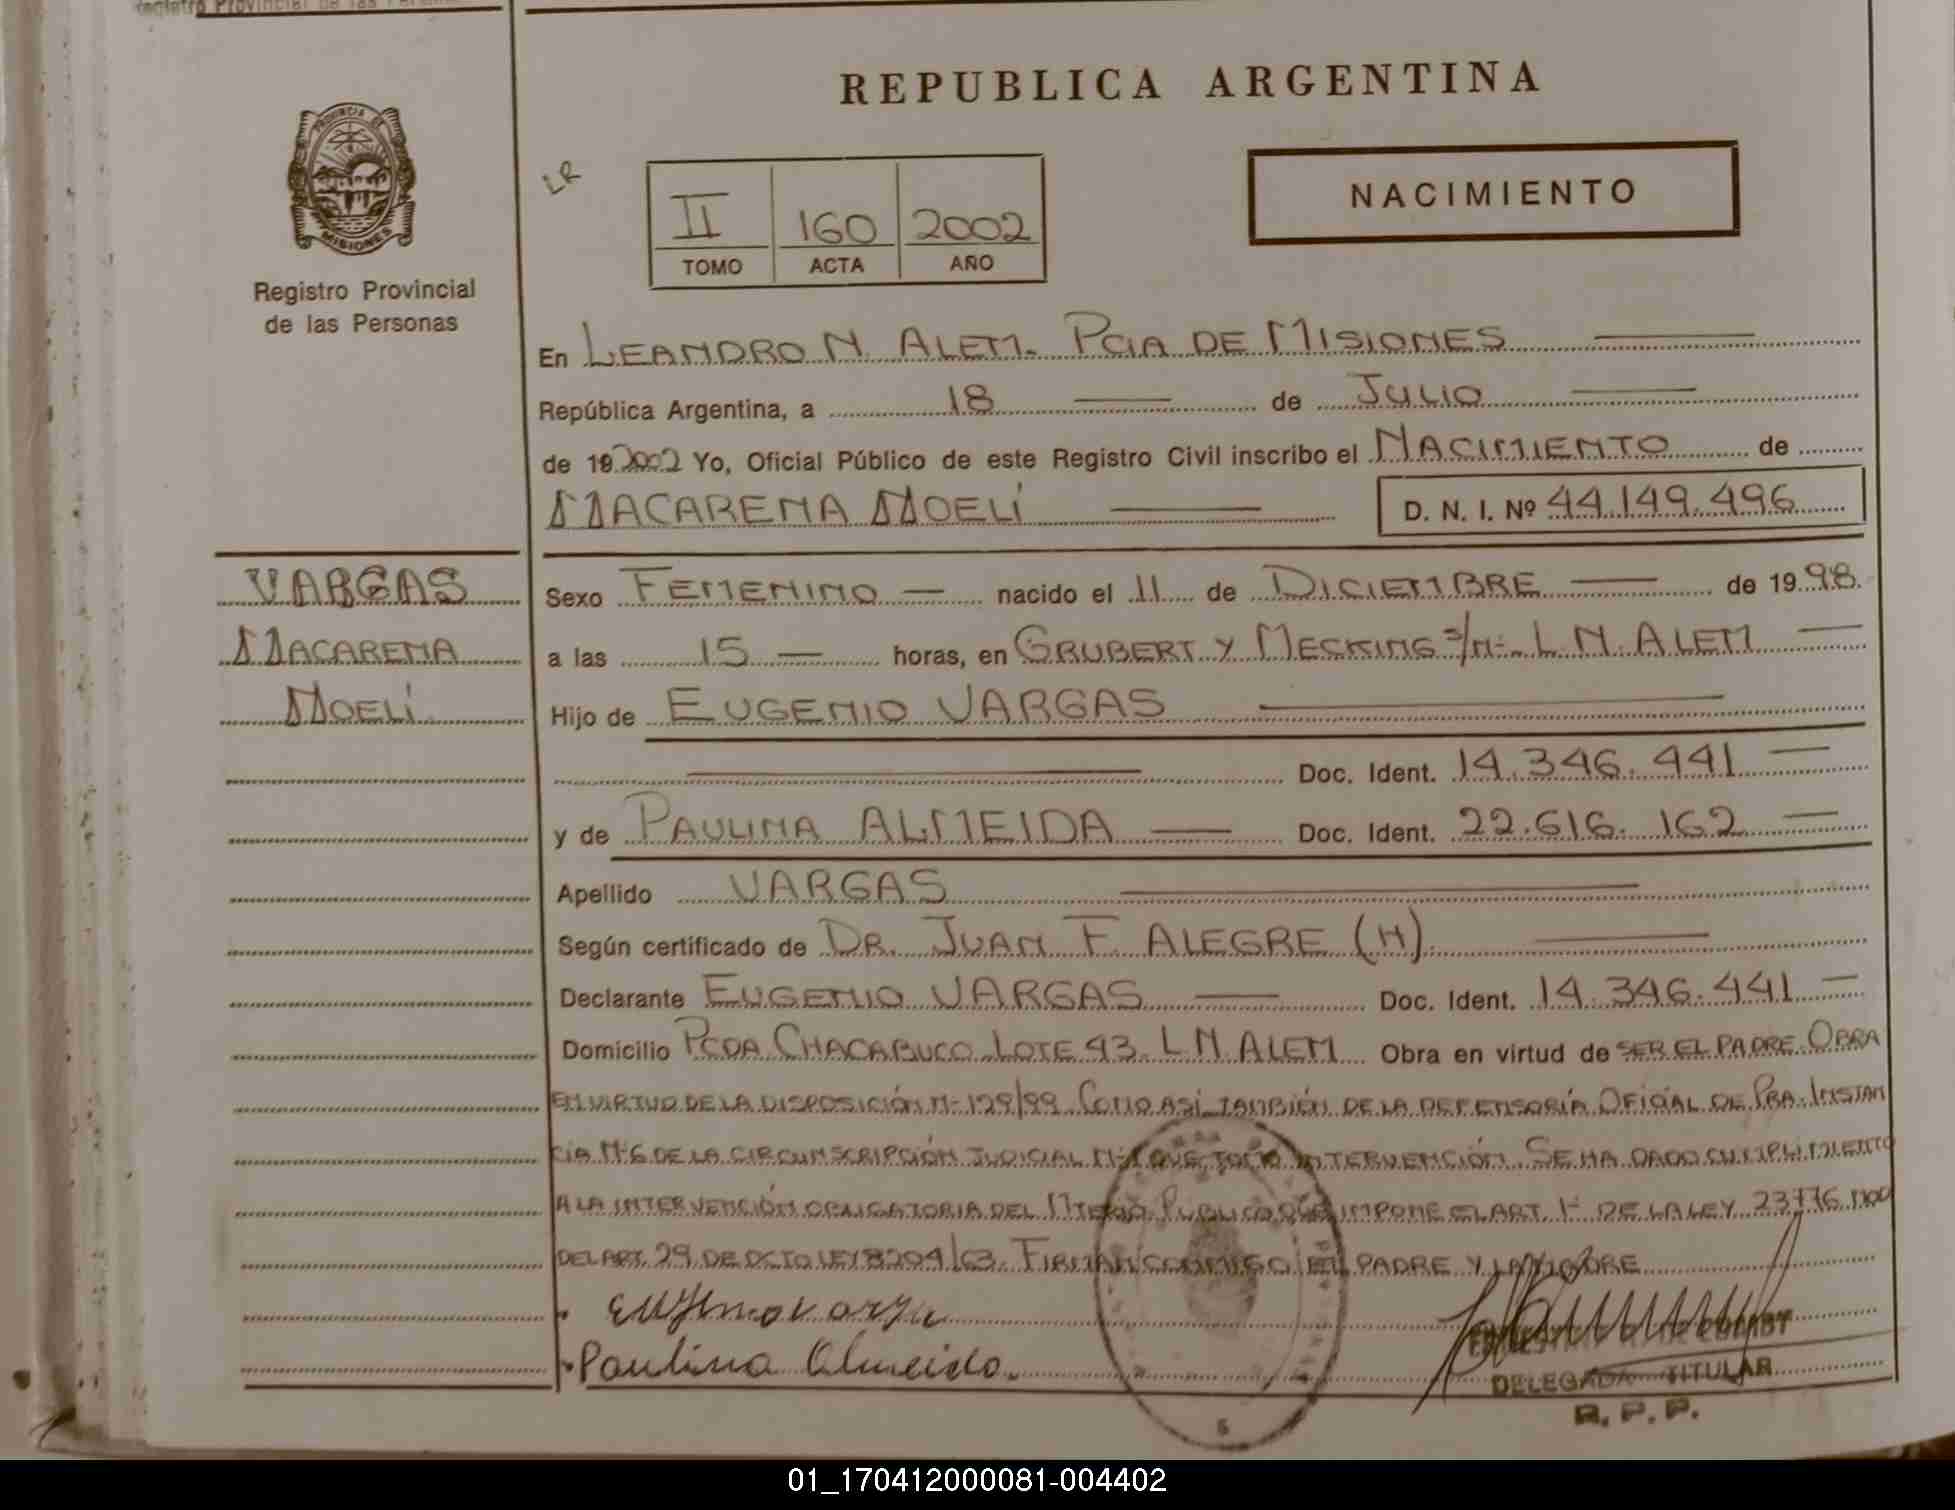 Registro Provincial de las Personas
REPUBLICA ARGENTINA
PROVINCIA DE
MISIONES
Registro Provincial
de las Personas
LR
II 160 2002
TOMO ACTA AÑO
NACIMIENTO
En LEANDRO N. ALEM. PCIA DE MISIONES
República Argentina, a 18 de JULIO
de 19 2002 Yo, Oficial Público de este Registro Civil inscribo el NACIMIENTO de
MACARENA NOELÍ D. N. I. Nº 44.149.496
VARGAS
MACARENA
NOELÍ
Sexo FEMENINO nacido el 11 de DICIEMBRE de 1998.
a las 15 horas, en GRUBERT Y MECKING S/N- L. N. ALEM
Hijo de EUGENIO VARGAS
Doc. Ident. 14.346.441
y de PAULINA ALMEIDA Doc. Ident. 22.616.162
Apellido VARGAS
Según certificado de DR. JUAN F. ALEGRE (H)
Declarante EUGENIO VARGAS Doc. Ident. 14.346.441
Domicilio PCDA. CHACABUCO LOTE 93. L N. ALEM Obra en virtud de SER EL PADRE. OBRA
EN VIRTUD DE LA DISPOSICIÓN N- 129/99. COMO ASÍ TAMBIÉN DE LA DEFENSORÍA OFICIAL DE PRA. INSTAN
CIA N-6 DE LA CIRCUNSCRIPCIÓN JUDICIAL N-1 QUE TOMÓ INTERVENCIÓN. SE HA DADO CUMPLIMIENTO
A LA INTERVENCIÓN OBLIGATORIA DEL PUBLICO QUE IMPONE EL ART. 1- DE LA LEY 23776 MOD
DEL ART. 29 DE DCTO LEY 8204/63. FIRMAN CONMIGO EL PADRE Y LA MADRE
Eugenio Vargas
Paulina Almeida.
DELEGADA TITULAR
R. P. P.
01_170412000081-004402